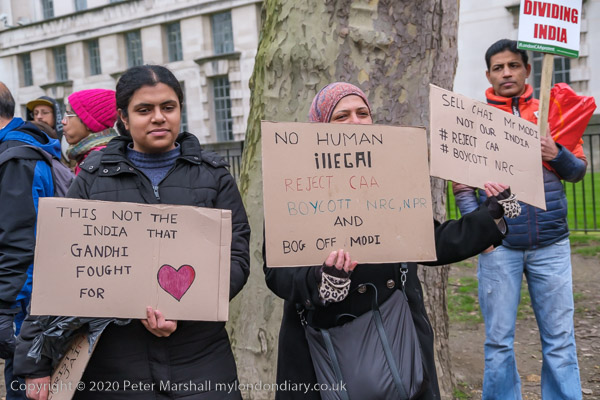 THIS NOT THE
INDIA THAT
GANDHI
FOUGHT
FOR
NO HUMAN
illEGAl
REJECT CAA
BOYCOTT NRC, NPR
AND
BOG OFF MODI
SELL CHAI Mr MODI
NOT OUR INDIA
# REJECT CAA
# BOYCOTT NRC
DIVIDING
INDIA
© 2020 Peter Marshall mylondondiary.co.uk